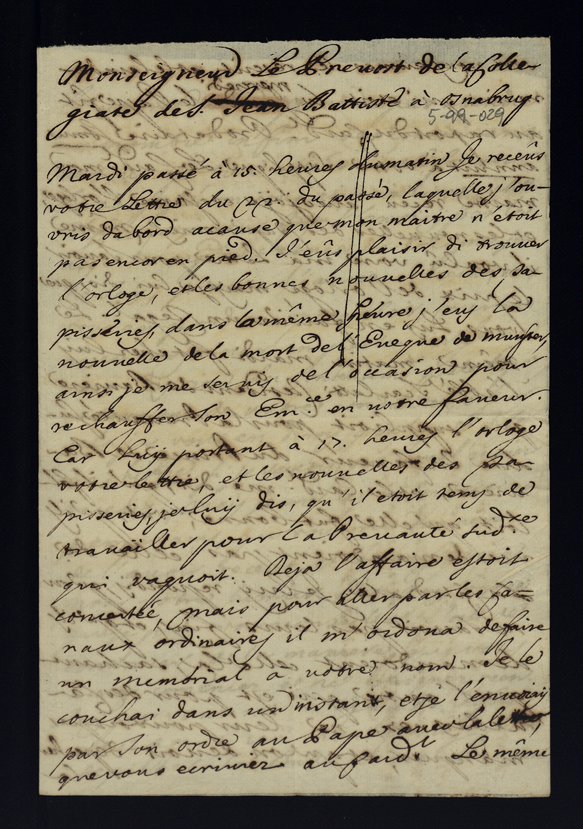 Monseigneur Le Prevost de la Colle-
giate de S.t Jean Battiste à Osnabrug
5-99-029
Mardi passé à 15. heures du matin Je receûs
votre Lettre du 22. du passé, laquelle j'ou-
vris dabord acause que mon maitre n'etoit
pas encor en pied. J'eûs plaisir di trouver
l'orloge, et les bonnes nouvelles des ta-
pisseries, dans la même heure j'eus la
nouvelle de la mort de l'Eveque de munster,
ainsi je me servis de l'occasion pour
rechauffer Son Em.ce en votre faveur.
Car luy portant à 17. heures l'orloge
votre lettre, et les nouvelles des ta-
pisseries, je luy dis, qu'il etoit tems de
travailler pour la Prevauté sud.te
qui vaquoit. Deja l'affaire estoit
concertée, mais pour aller par les ca-
naux ordinaires il m'ordona de faire
un memorial a votre nom. Je le
couchai dans un instant, et je l'envoiay
par son ordre au Pape avec la lettre,
que vous ecriviez au Card.l Le même